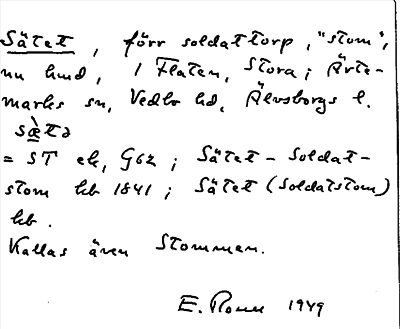 Sätet, förr soldattorp, "stom",
nu lund, i Flaten, Stora; Ärte-
marks sn, Vedbo hd, Älvsborgs l.
sä̀tə
= ST ek, G62; Sätet - Soldat-
stom hb 1841; Sätet (Soldatstom)
hb.
Kallas även Stommen.
E. 1949